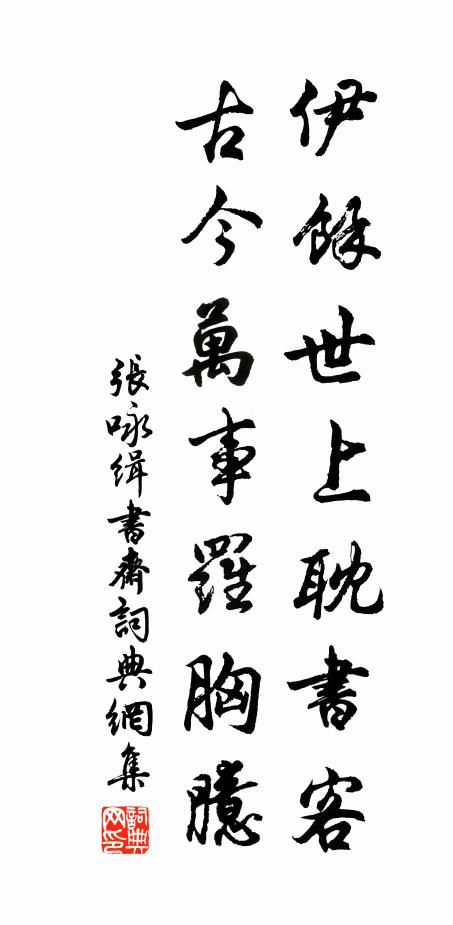 伊餘世上耽書客
古今萬事羅胸臆
張咏缉書齋詞典網集
詞典网印